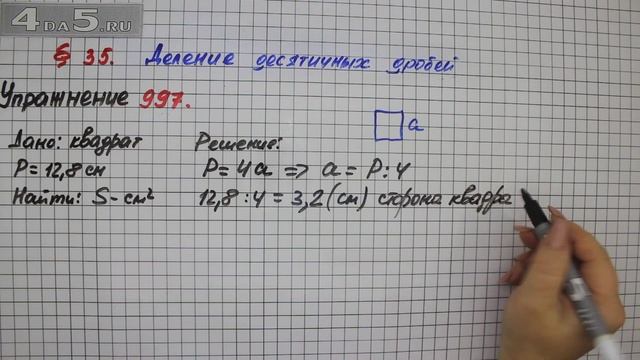 4DA5.RU
§ 35. Деление десятичных дробей
Упражнение 997.
a
Дано: квадрат
P = 12,8 см
Найти: S - см²
Решение:
P = 4a => a = P : 4
12,8 : 4 = 3,2 (см) сторона квадра